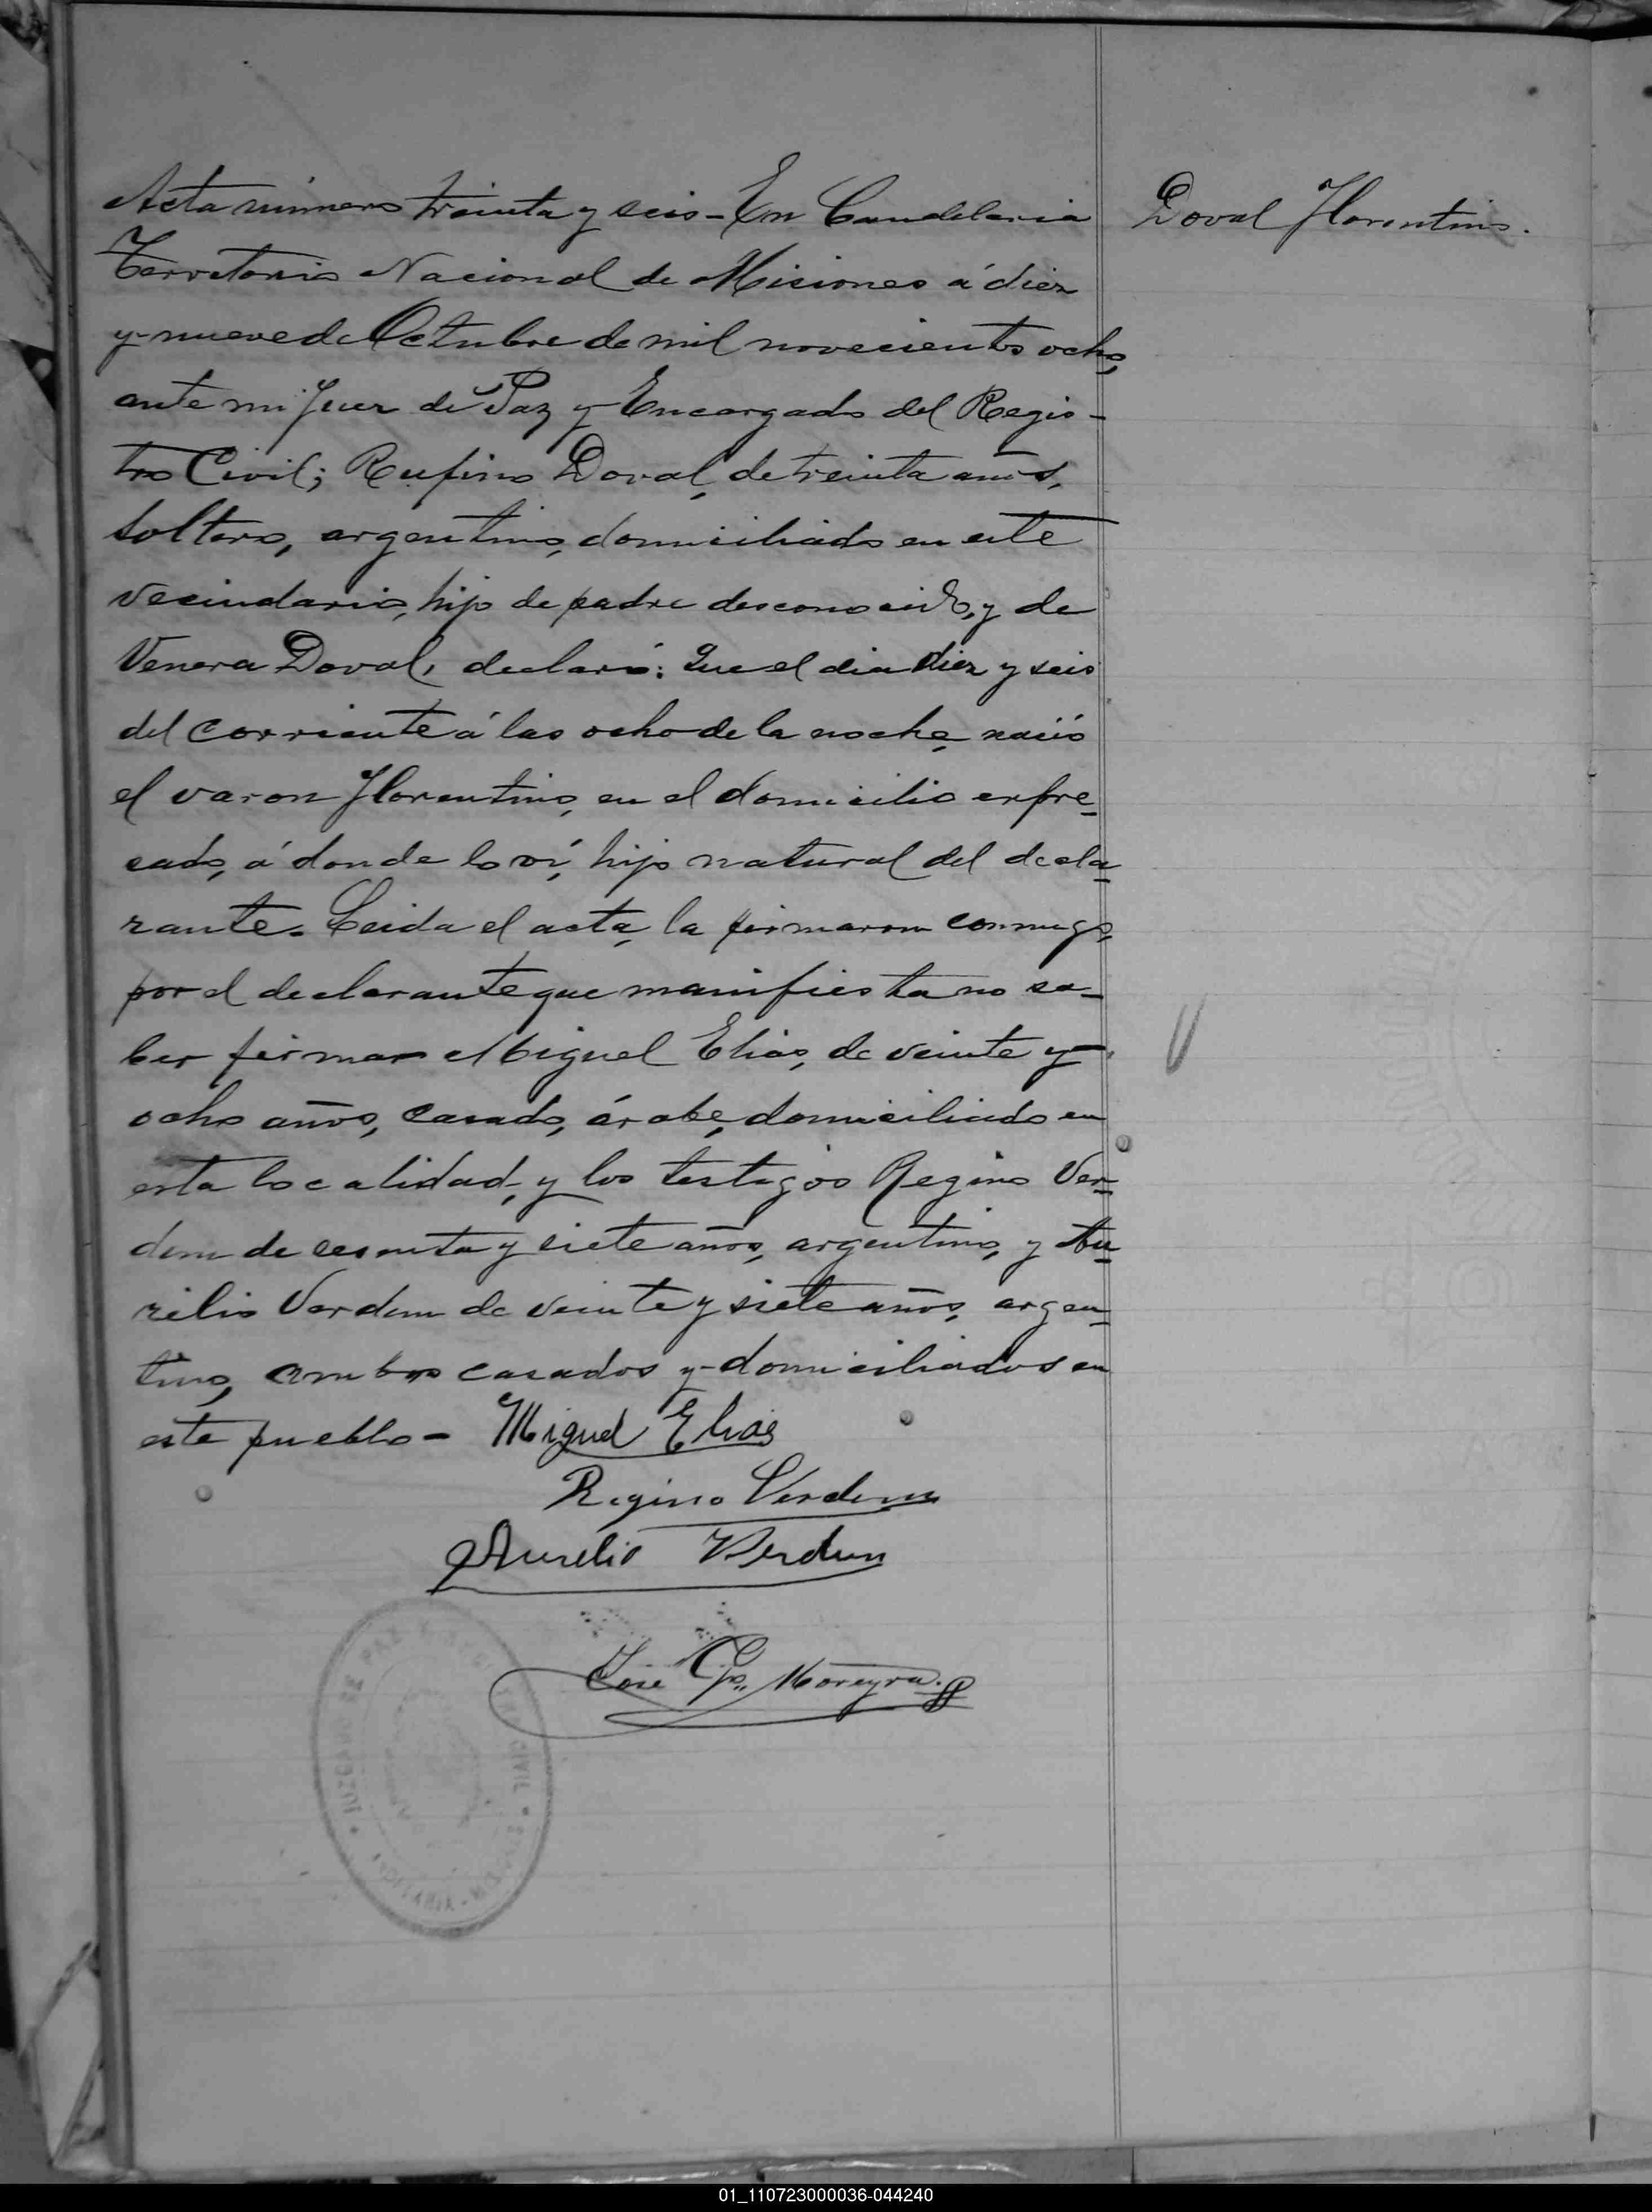 Acta número treinta y seis - En Candelaria
Doval Florentino.
Territorio Nacional de Misiones á diez
y nueve de Octubre de mil novecientos ocho,
ante mi Juez de Paz y Encargado del Regis-
tro Civil; Rufino Doval, de treinta años,
soltero, argentino, domiciliado en este
vecindario, hijo de padre desconocido, y de
Venera Doval, declaró: Que el dia diez y seis
del corriente á las ocho de la noche, nació
el varon Florentino, en el domicilio expre-
sado, á donde lo ví, hijo natural del decla-
rante. Leida el acta, la firmaron conmigo,
por el declarante que manifiesta no sa-
ber firmar Miguel Elias, de veinte y
ocho años, casado, árabe, domiciliado en
esta localidad, y los testigos Regino Ver-
dun de sesenta y siete años, argentino, y Au-
relio Verdun de veinte y siete años, argen-
tino, ambos casados y domiciliados en
este pueblo - Miguel Elias
Regino Verdun
Aurelio Verdun
José Moreyra.
JUZGADO DE PAZ CIVIL
01_110723000036-044240